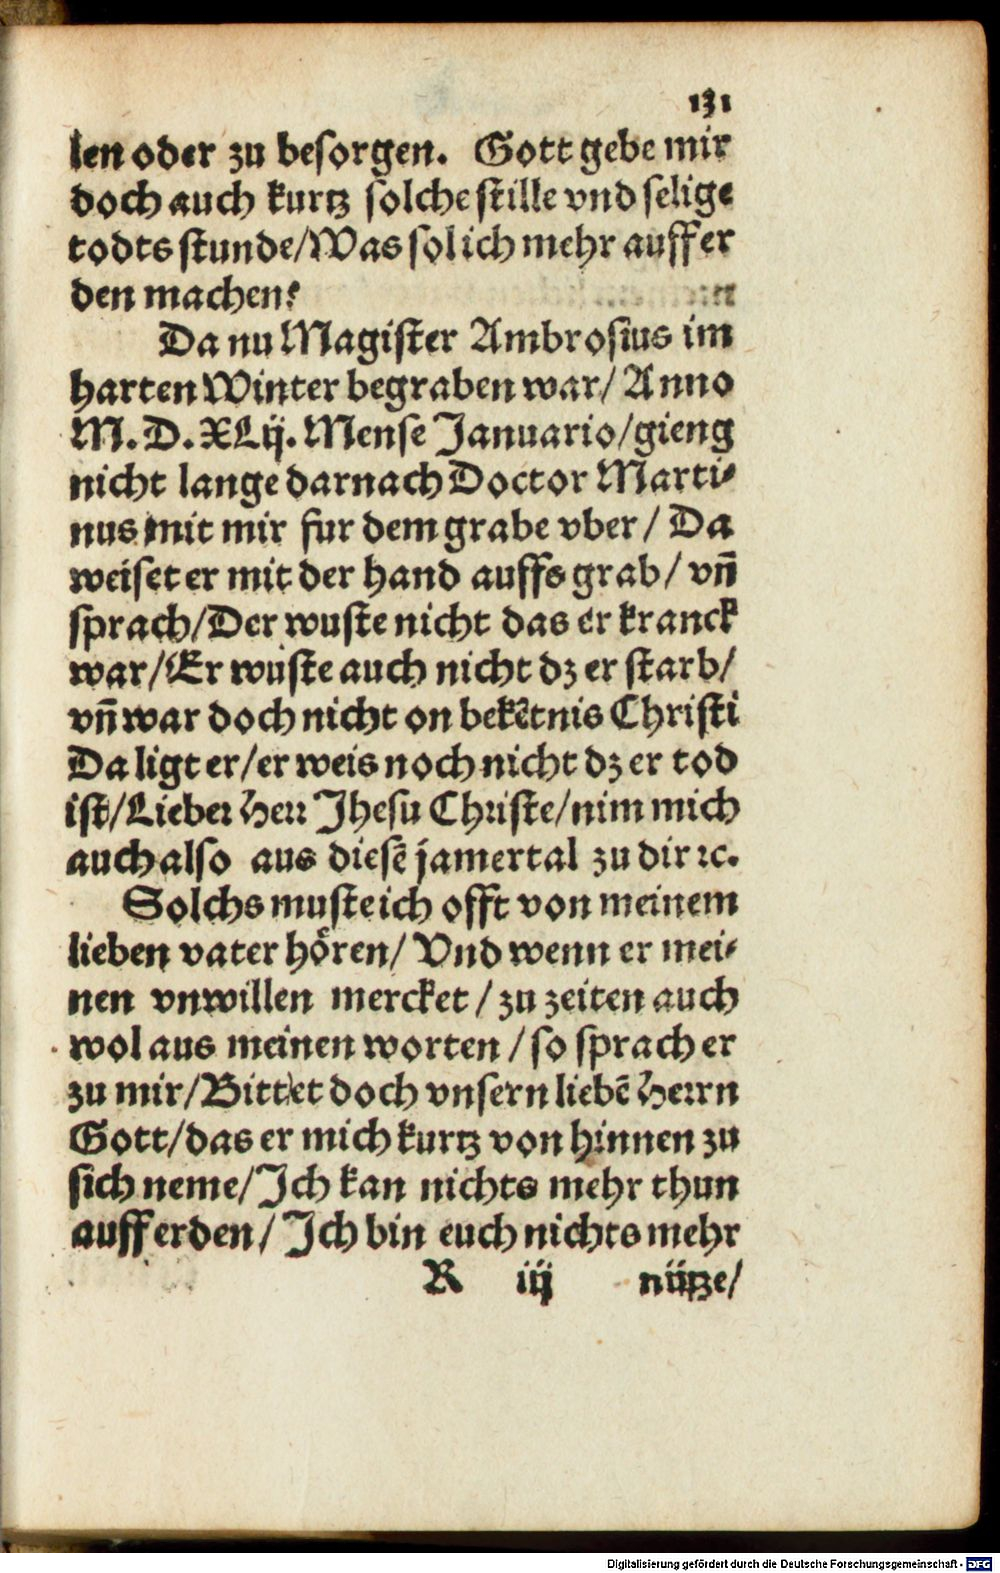 131
len oder zu besorgen. Gott gebe mir
doch auch kurtz solche stille vnd selige
todts stunde/Was sol ich mehr auff er
den machen?
Da nu Magister Ambrosius im
harten Winter begraben war/ Anno
M. D. XLij. Mense Januario/gieng
nicht lange darnach Doctor Marti-
nus mit mir fur dem grabe vber/ Da
weiset er mit der hand auffs grab/ vn̄
sprach/Der wuste nicht das er kranck
war/Er wuste auch nicht dz er starb/
vn̄ war doch nicht on bekētnis Christi
Da ligt er/er weis noch nicht dz er tod
ist/Lieber Herr Jhesu Christe/nim mich
auch also aus diesē jamertal zu dir ꝛc.
Solchs muste ich offt von meinem
lieben vater hören/ Vnd wenn er mei-
nen vnwillen mercket/ zu zeiten auch
wol aus meinen worten/ so sprach er
zu mir/Bittet doch vnsern liebē Herrn
Gott/das er mich kurtz von hinnen zu
sich neme/Jch kan nichts mehr thun
auff erden/ Jch bin euch nichts mehr
R iij nütze/
Digitalisierung gefördert durch die Deutsche Forschungsgemeinschaft - DFG